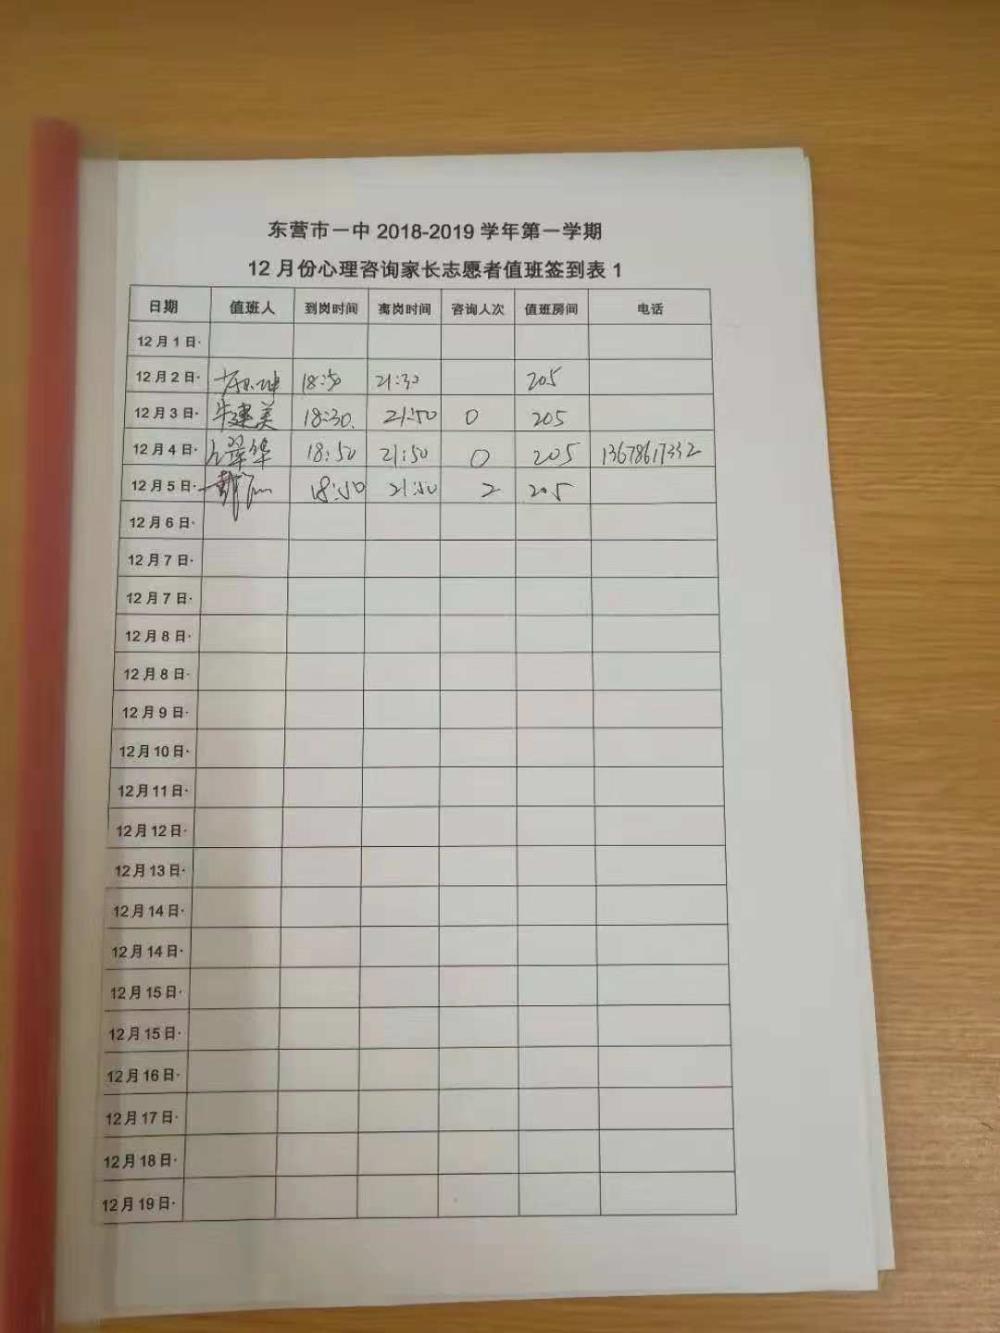 东营市一中 2018-2019 学年第一学期
12 月份心理咨询家长志愿者值班签到表 1
日期 值班人 到岗时间 离岗时间 咨询人次 值班房间 电话
12 月 1 日·
12 月 2 日· 18:50 21:30 205
12 月 3 日· 朱建美 18:30. 21:50 0 205
12 月 4 日· 翠华 18:50 21:50 0 205 13678617332
12 月 5 日· 18:50 21:50 2 205
12 月 6 日·
12 月 7 日·
12 月 7 日·
12 月 8 日·
12 月 8 日·
12 月 9 日·
12 月 10 日·
12 月 11 日·
12 月 12 日·
12 月 13 日·
12 月 14 日·
12 月 14 日·
12 月 15 日·
12 月 15 日·
12 月 16 日·
12 月 17 日·
12 月 18 日·
12 月 19 日·